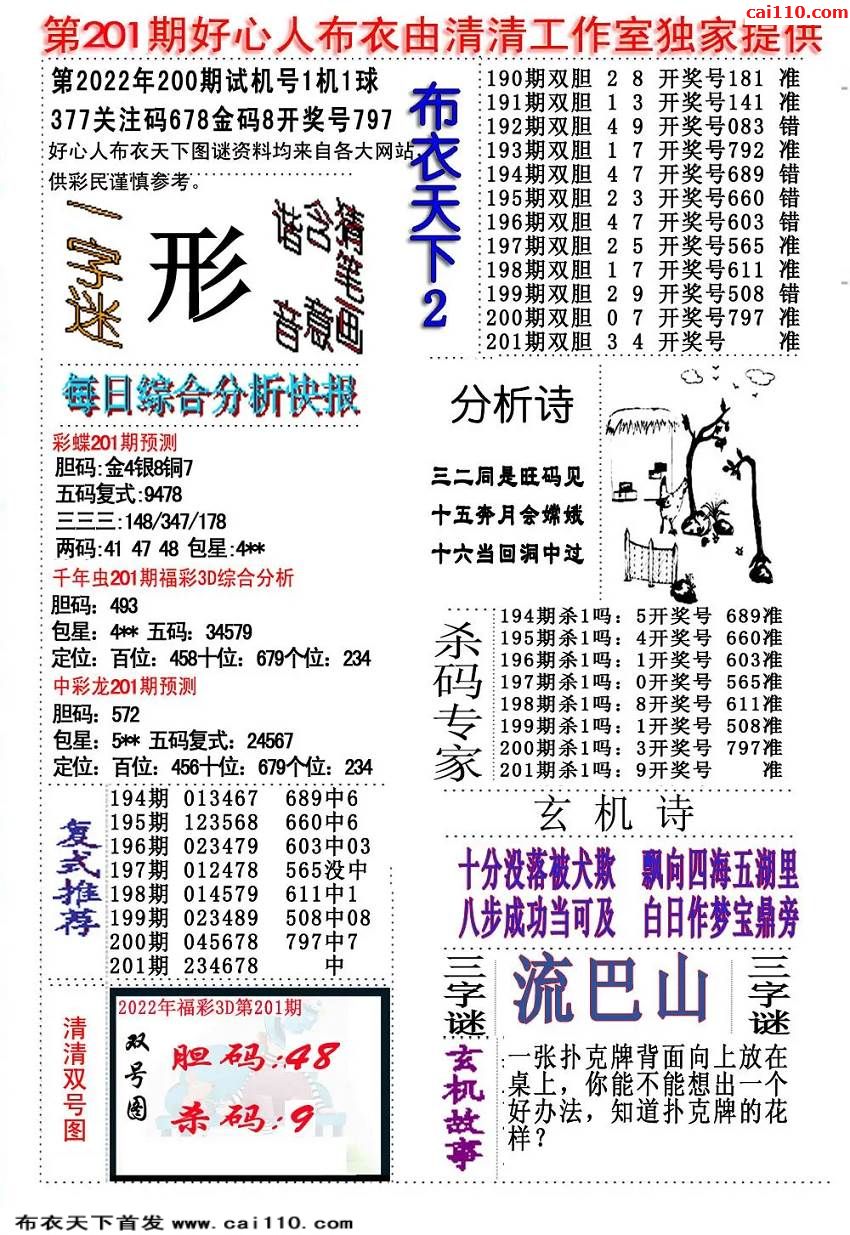 cai110.com
第201期好心人布衣由清清工作室独家提供
第2022年200期试机号1机1球
377关注码678金码8开奖号797
好心人布衣天下图谜资料均来自各大网站,
供彩民谨慎参考。
一字迷
形
猜笔画
含意
谐音
布衣天下2
190期双胆 2 8 开奖号181 准
191期双胆 1 3 开奖号141 准
192期双胆 4 9 开奖号083 错
193期双胆 1 7 开奖号792 准
194期双胆 4 7 开奖号689 错
195期双胆 2 3 开奖号660 错
196期双胆 4 7 开奖号603 错
197期双胆 2 5 开奖号565 准
198期双胆 1 7 开奖号611 准
199期双胆 2 9 开奖号508 错
200期双胆 0 7 开奖号797 准
201期双胆 3 4 开奖号 准
每日综合分析快报
彩蝶201期预测
胆码:金4银8铜7
五码复式:9478
三三三:148/347/178
两码:41 47 48 包星:4**
千年虫201期福彩3D综合分析
胆码: 493
包星: 4** 五码: 34579
定位: 百位: 458十位: 679个位: 234
中彩龙201期预测
胆码: 572
包星: 5** 五码复式: 24567
定位: 百位: 456十位: 679个位: 234
分析诗
三二同是旺码见
十五奔月会嫦娥
十六当回洞中过
杀码专家
194期杀1吗: 5开奖号 689准
195期杀1吗: 4开奖号 660准
196期杀1吗: 1开奖号 603准
197期杀1吗: 0开奖号 565准
198期杀1吗: 8开奖号 611准
199期杀1吗: 1开奖号 508准
200期杀1吗: 3开奖号 797准
201期杀1吗: 9开奖号 准
复式推荐
194期 013467 689中6
195期 123568 660中6
196期 023479 603中03
197期 012478 565没中
198期 014579 611中1
199期 023489 508中08
200期 045678 797中7
201期 234678 中
玄机诗
十分没落被犬欺 飘向四海五湖里
八步成功当可及 白日作梦宝鼎旁
三字谜
流巴山
三字谜
清清双号图
2022年福彩3D第201期
双号图
胆码:48
杀码:9
玄机故事
一张扑克牌背面向上放在
桌上，你能不能想出一个
好办法，知道扑克牌的花
样？
布衣天下首发 www.cai110.com